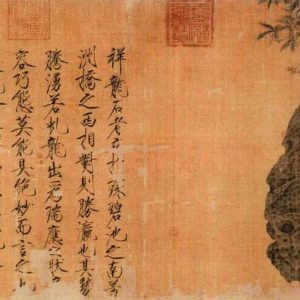 祥龍石者立於環碧池之南芳
洲橋之西相對則勝瀛也其勢
騰湧若虬龍出為瑞應之狀
容巧態莫能具絶妙而言之也